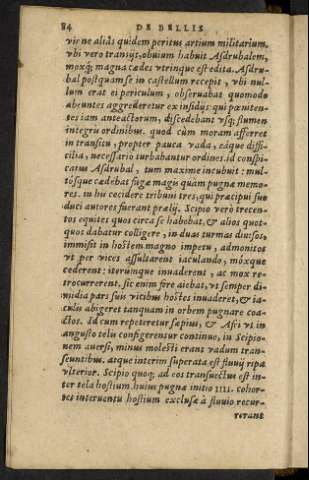 84 DE BELLIS
vir ne aliâs quidem peritus artium militarium,
vbi vero transijt, obuium habuit Asdrubalem,
moxq; magna cædes vtrinque est edita. Asdru-
bal postquam se in castellum recepit, vbi nul-
lum erat ei periculum, obseruabat quomodo
abeuntes aggrederetur ex insidijs: qui pœniten-
tes iam anteactorum, discedebant vsq; flumen
integris ordinibus. quod cùm moram afferret
in transitu, propter pauca vada, eáque diffi-
cilia, necessario turbabantur ordines. id conspi-
catus Asdrubal, tum maxime incubuit: mul-
tósque cædebat fugæ magis quam pugnæ memo-
res. in his cecidere tribuni tres, qui præcipui suo
duci autores fuerant prælij. Scipio verò trecen-
tos equites quos circa se habebat, & alios quot-
quos dabatur colligere, in duas turmas diuisos,
immisit in hostem magno impetu, admonitos
vt per vices assultarent iaculando, móxque
cederent: iterúmque inuaderent, ac mox re-
trocurrerent. sic enim fore aiebat, vt semper di-
midia pars suis vicibus hostes inuaderet, & ia-
culis abigeret tanquam in orbem pugnare coa-
ctos. Id cum repeteretur sæpius, & Afri vt in
angusto telis configerentur continuo, in Scipio-
nem auersi, minus molesti erant vadum tran-
seuntibus. atque interim superata est fluuij ripa
vlterior. Scipio quoq; ad eos transuectus est in-
ter tela hostium. huius pugnæ initio IIII. cohor-
tes interuentu hostium exclusæ à fluuio recur-
rerant